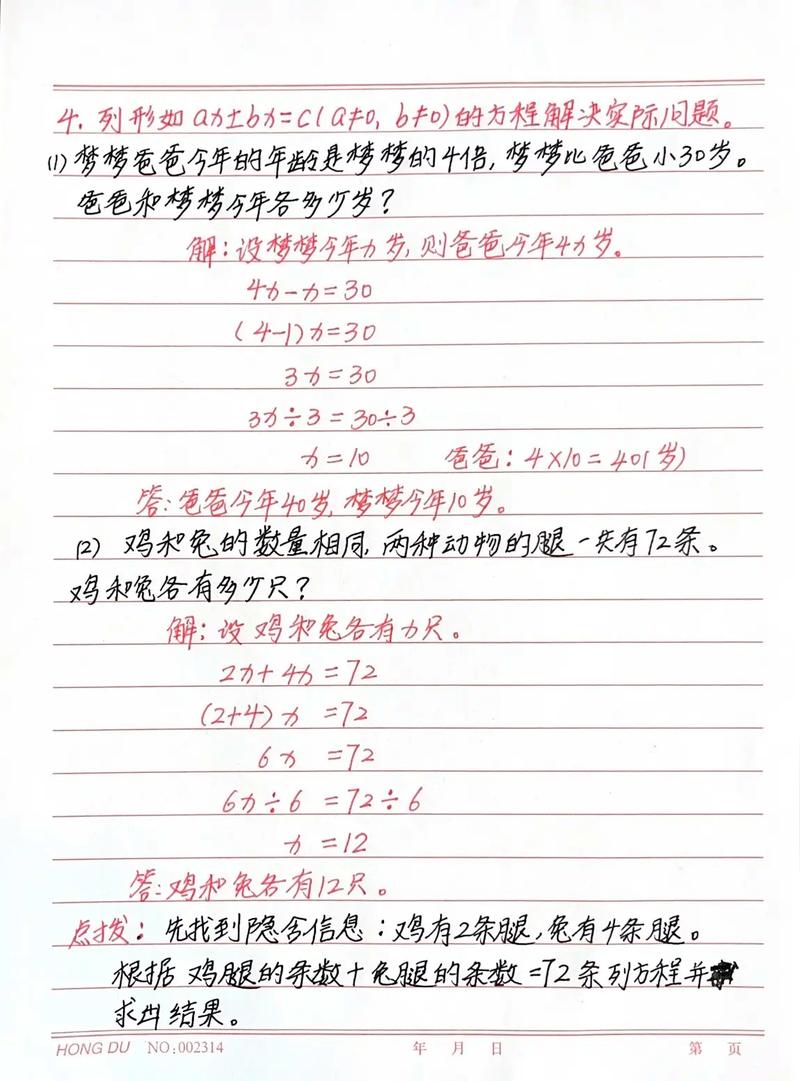 4. 列形如 ax±bx=c(a≠0, b≠0)的方程解决实际问题。
(1) 梦梦爸爸今年的年龄是梦梦的4倍, 梦梦比爸爸小30岁。
爸爸和梦梦今年各多少岁?
解:设梦梦今年x岁, 则爸爸今年4x岁。
4x-x=30
(4-1)x=30
3x=30
3x÷3=30÷3
x=10 爸爸:4×10=40(岁)
答:爸爸今年40岁, 梦梦今年10岁。
(2) 鸡和兔的数量相同, 两种动物的腿一共有72条。
鸡和兔各有多少只?
解:设鸡和兔各有x只。
2x+4x=72
(2+4)x=72
6x=72
6x÷6=72÷6
x=12
答:鸡和兔各有12只。
点拨:先找到隐含信息:鸡有2条腿,兔有4条腿。
根据鸡腿的条数+兔腿的条数=72条列方程并
求出结果。
HONG DU NO:002314 年 月 日 第 页